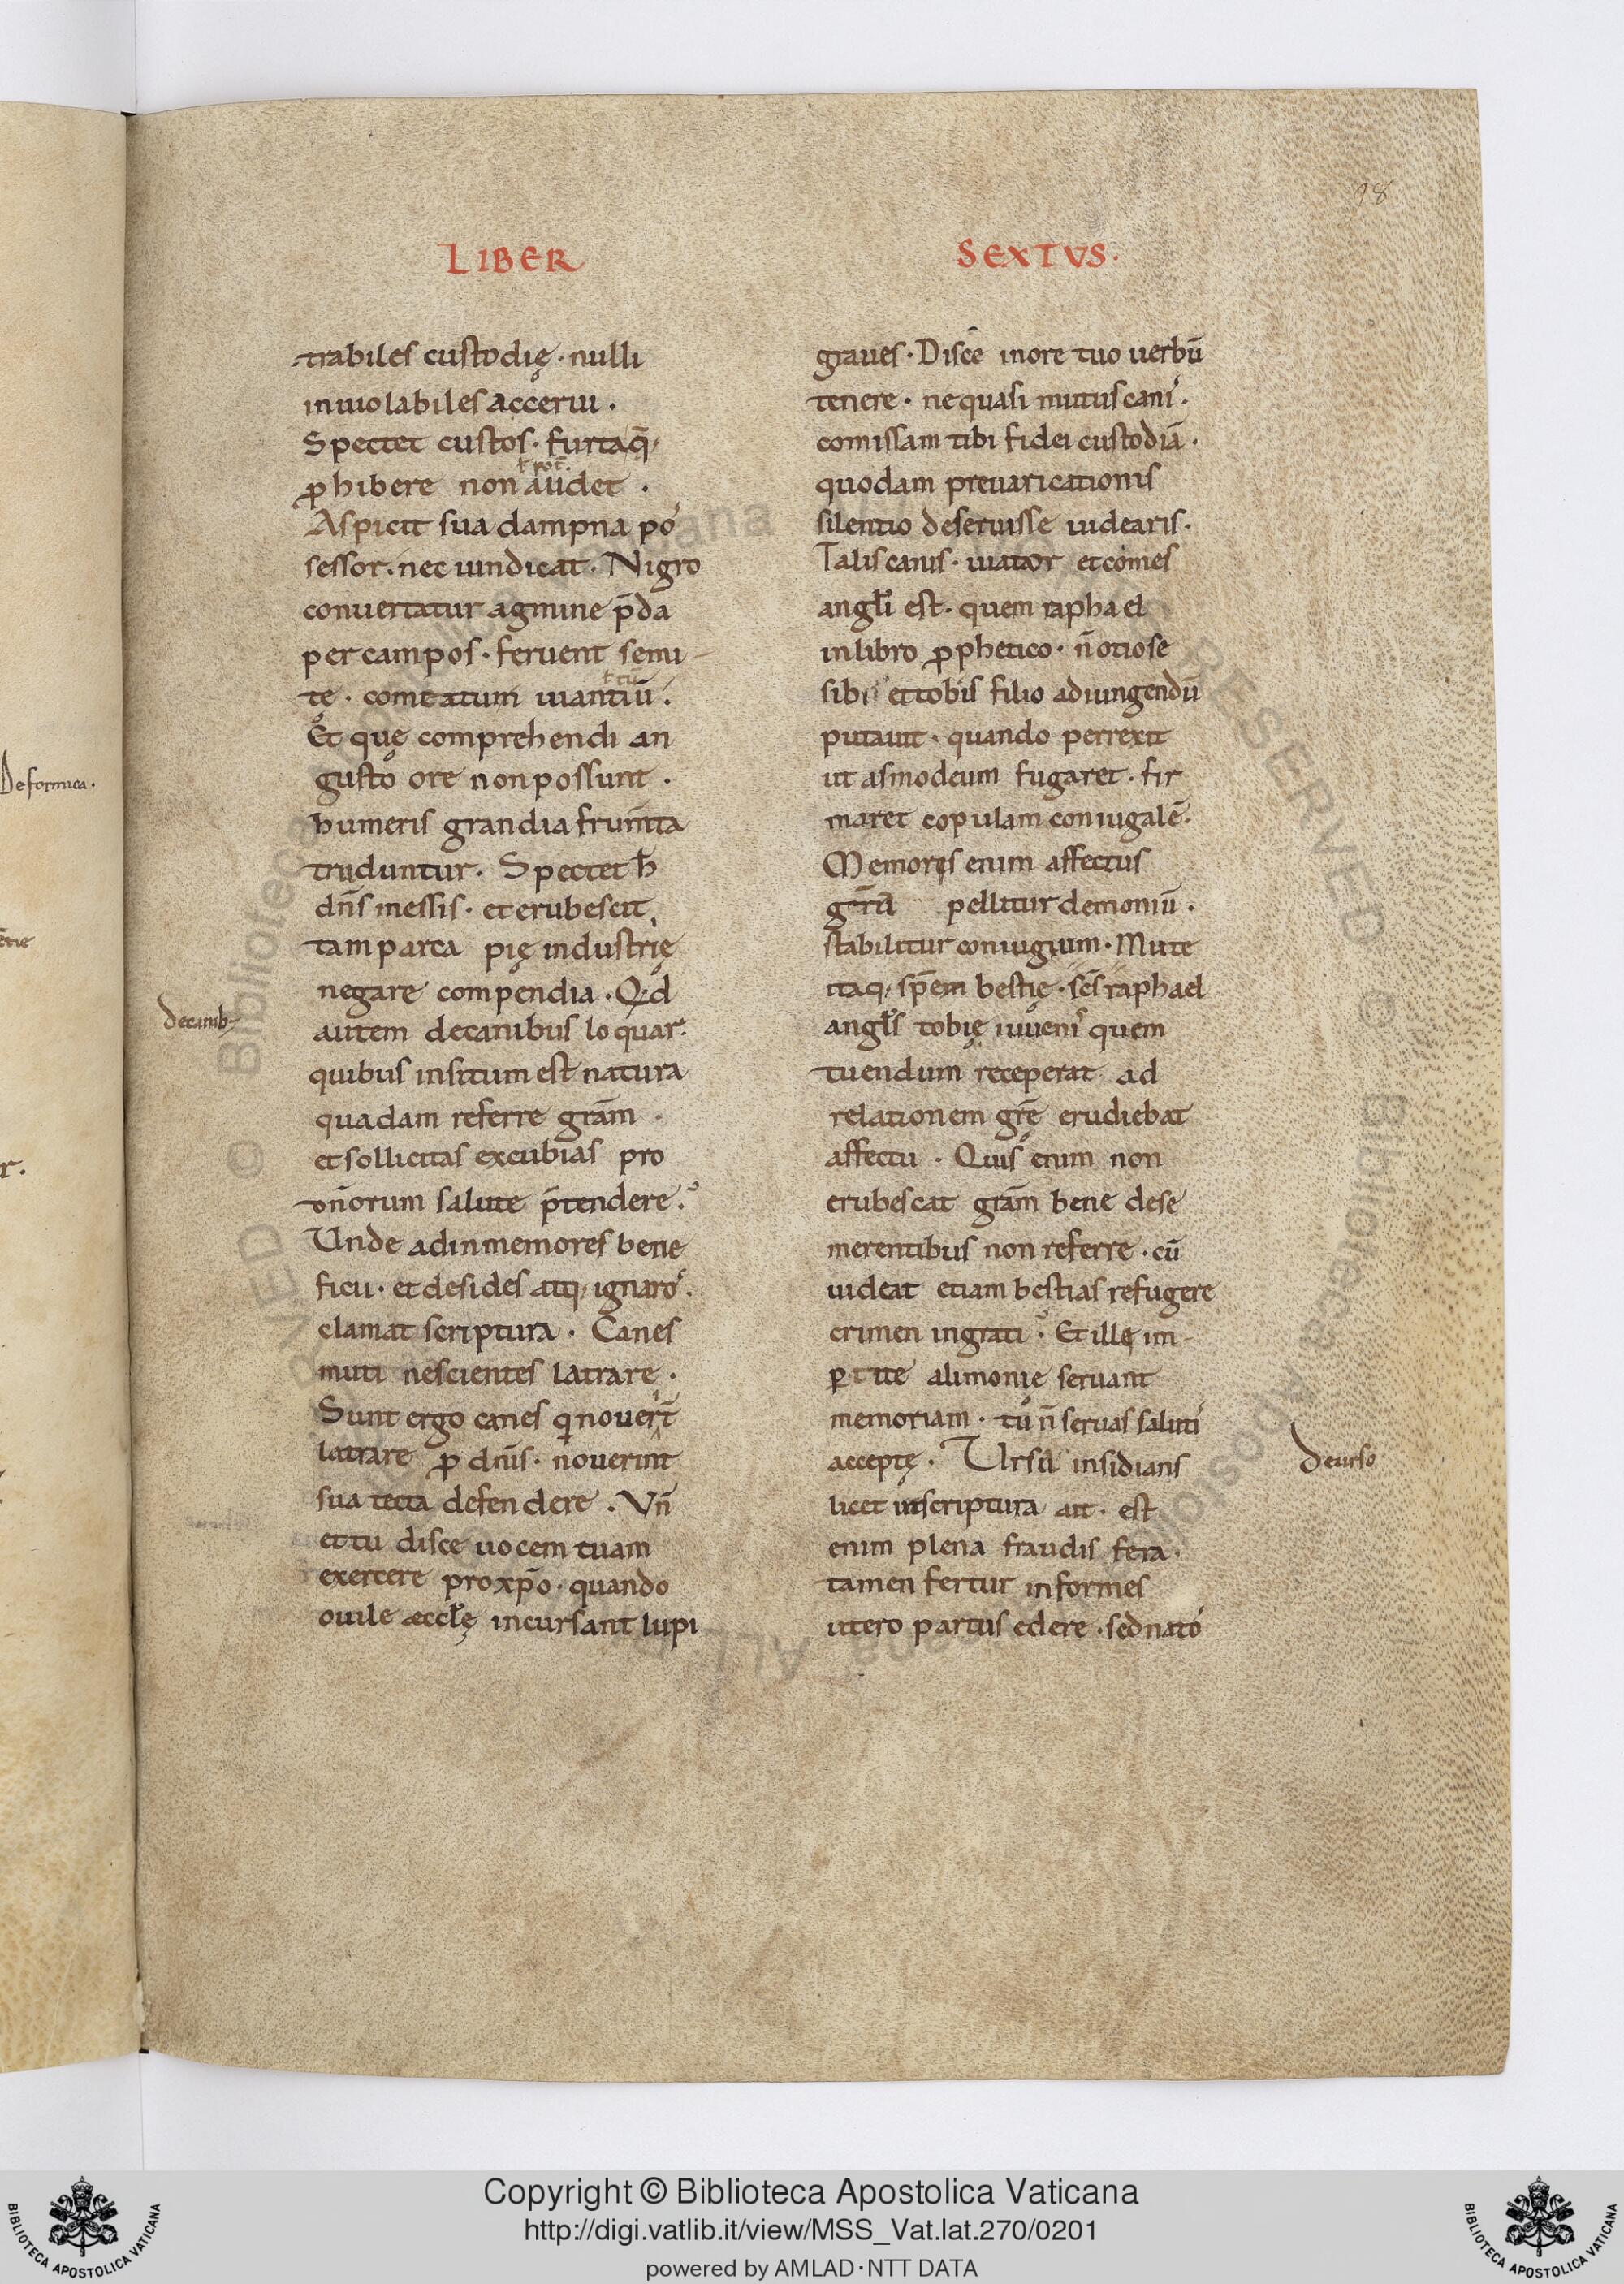 98
LIBER
trabiles custodię · nulli
inuiolabiles acęerui ·
Spectet custos · furtaq̄;
ꝓhibere non audet ·
ł pot̄.
Aspicit sua dampna pos
sessor · nec uindicat · Nigro
conuertatur agmine p̄da
per campos · feruent semi-
tę · comeatum uiantiū ·
ł tū
Et quę comprehendi an
gusto ore non possunt ·
humeris grandia frum̄ta
truduntur · Spectet h̄
dn̄s messis · et erubescit
tam parca pię industrię
negare compendia · Qd
autem de canibus loquar·
quibus insitum est natura
quadam referre grām ·
et sollicitas excubias pro
dn̄orum salute p̄tendere ·
Unde ad inmemores bene
ficii · et desides atq; ignaros ·
clamat scriptura · Canes
muti nescientes latrare ·
Sunt ergo canes qi nouerīt
latrare ꝓ dn̄is · nouerint
sua tecta defendere · Vn̄
et tu disce uocem tuam
exercere pro xp̄o · quando
ouile æccłę incursant lupi
SEXTVS·
graues · Discē in ore tuo uerbū
tenere · ne quasi mutus canis ·
comissam tibi fidei custodiā ·
quodam preuaricationis
silentio deseruisse uidearis ·
Talis canis · uiator et comes
angłi est · quem raphael
in libro ꝓphetico · n̄ otiose
sibi et tobis filio adiungendū
putauit · quando perrexit
ut asmodeum fugaret · fir
maret copulam coniugalē ·
Memores enim affectus
grā pellitur demoniū ·
stabilitur coniugium · Mute
itaq; sp̄em bestię · scs̄ raphael
angłs tobię iuuenis quem
tuendum receperat ad
relationem grę̄ erudiebat
affectu · Quis enim non
erubescat grām bene dese
merentibus non referre · cū
uideat etiam bestias refugere
crimen ingrati · Et illę im-
p·tite alimonię seruant
memoriam · tu n̄ seruas salutis
acceptę · Ursa insidians
licet ut scriptura ait · est
enim plena fraudis fera ·
tamen fertur informes
utero partus edere · sed natos
De canib;
De urso
De formica ·
Copyright © Biblioteca Apostolica Vaticana
http://digi.vatlib.it/view/MSS_Vat.lat.270/0201
powered by AMLAD·NTT DATA
BIBLIOTECA APOSTOLICA VATICANA
BIBLIOTECA APOSTOLICA VATICANA